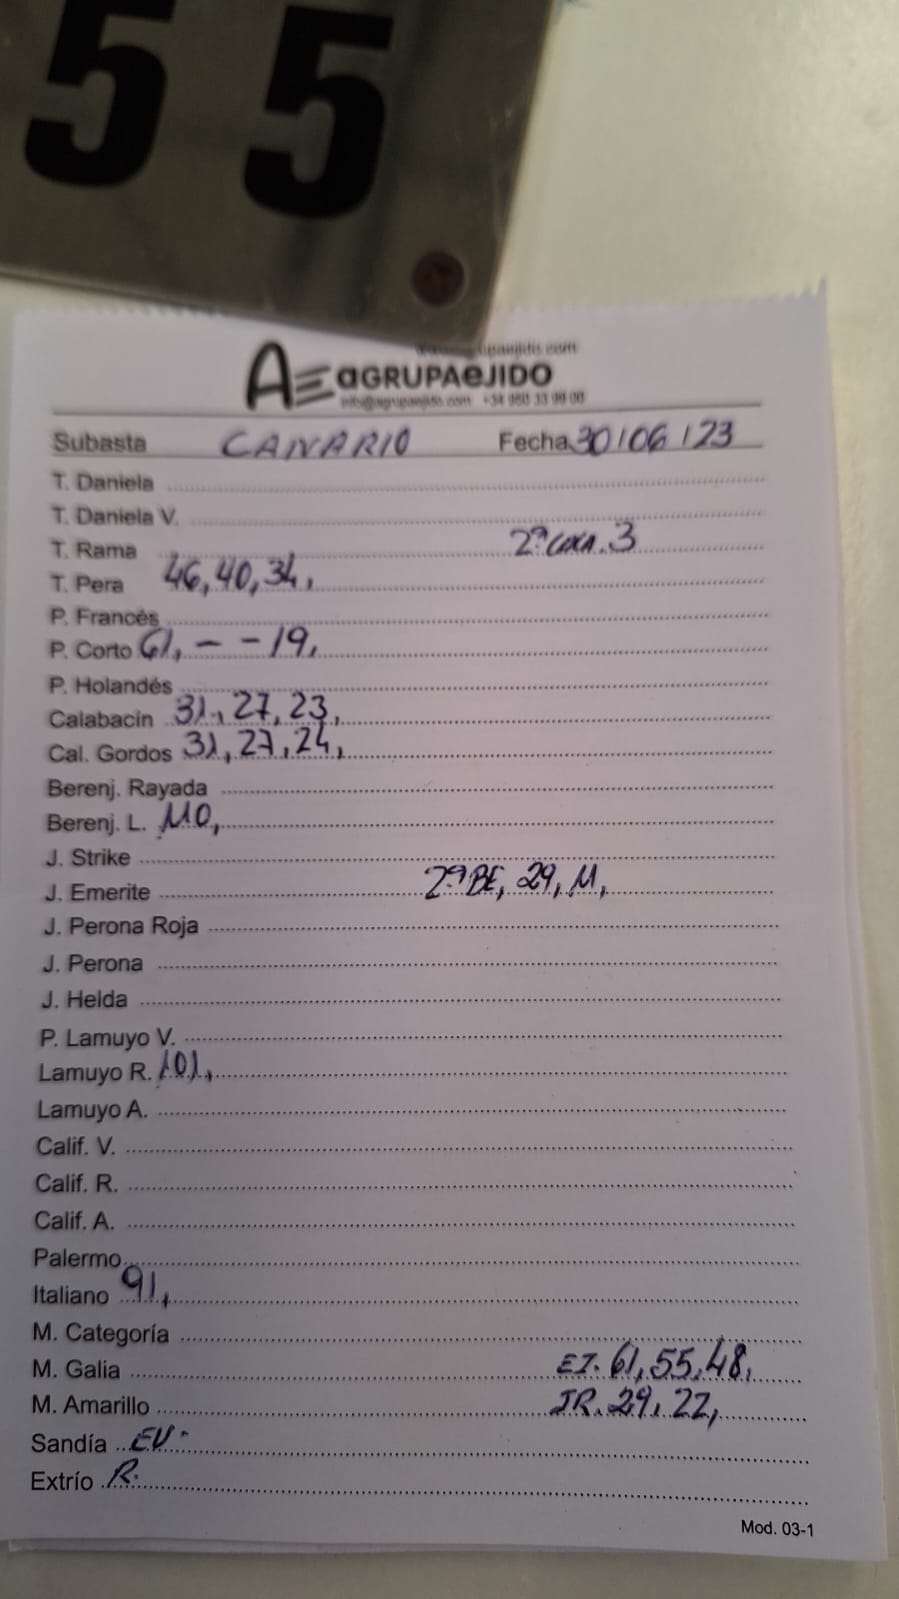 55
AE aGRUPAeJIDO
info@agrupaejido.com +34 950 33 99 00
Subasta CANARIO Fecha 30/06/23
T. Daniela
T. Daniela V.
T. Rama 2ª COCA. 3
T. Pera 46, 40, 34,
P. Francés
P. Corto 61, - - 19,
P. Holandés
Calabacín 31, 27, 23,
Cal. Gordos 31, 27, 24,
Berenj. Rayada
Berenj. L. 110,
J. Strike
J. Emerite 2ª BE, 29, M,
J. Perona Roja
J. Perona
J. Helda
P. Lamuyo V.
Lamuyo R. 101,
Lamuyo A.
Calif. V.
Calif. R.
Calif. A.
Palermo
Italiano 91,
M. Categoría
M. Galia EJ. 61, 55, 48,
M. Amarillo JR. 29, 22,
Sandía EV.
Extrío R.
Mod. 03-1